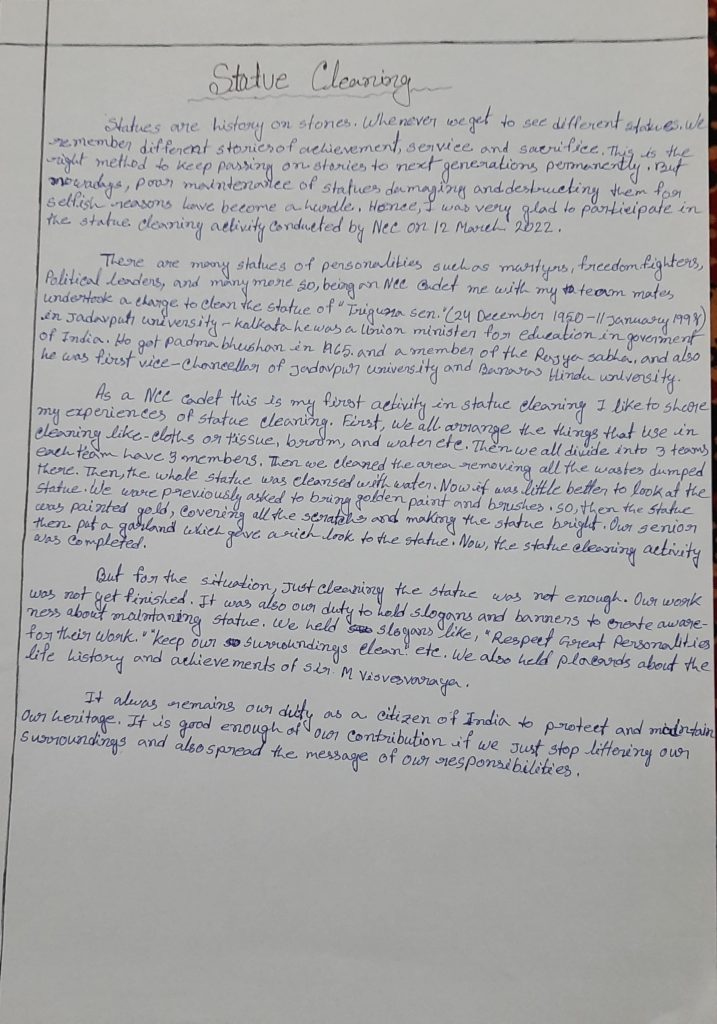 Statue Cleaning
Statues are history on stones. Whenever we get to see different statues. We
remember different stories of achievement, service and sacrifice. This is the
right method to keep passing on stories to next generations permanently. But
nowadays, poor maintenance of statues damaging and destructing them for
selfish reasons have become a hurdle. Hence, I was very glad to participate in
the statue cleaning activity conducted by Ncc on 12 March 2022.
There are many statues of personalities such as martyrs, freedom fighters,
Political leaders, and many more so, being an Ncc Cadet me with my team mates
undertook a charge to clean the statue of "Triguna sen." (24 December 1950 - 11 January 1998)
in Jadavpur university - kolkata he was a Union minister for education in goverment
of India. He got padma bhushan in 1965. and a member of the Rajya sabha, and also
he was first vice-chancellor of Jadavpur university and Banaras Hindu university.
As a Ncc cadet this is my first activity in statue cleaning I like to share
my experiences of statue cleaning. First, we all arrange the things that use in
cleaning like-cloths or tissue, broom, and water etc. Then we all divide into 3 teams
each team have 3 members. Then we cleaned the area removing all the wastes dumped
there. Then, the whole statue was cleansed with water. Now it was little better to look at the
statue. We ware previously asked to bring golden paint and brushes. so, then the statue
was painted gold, covering all the scratchs and making the statue bright. Our senior
then put a garland which gave a rich look to the statue. Now, the statue cleaning activity
was completed.
But for the situation, Just cleaning the statue was not enough. Our work
was not yet finished. It was also our duty to hold slogans and banners to create aware-
ness about maintaning statue. We held slogans like, "Respect Great Personalities
for their work." "keep our surroundings clean". etc. We also held placards about the
life history and achievements of sir M visvesvaraya.
It alwas remains our duty as a citizen of India to protect and maintain
Our heritage. It is good enough of our contribution if we Just stop littering our
surroundings and also spread the message of our responsibilities.